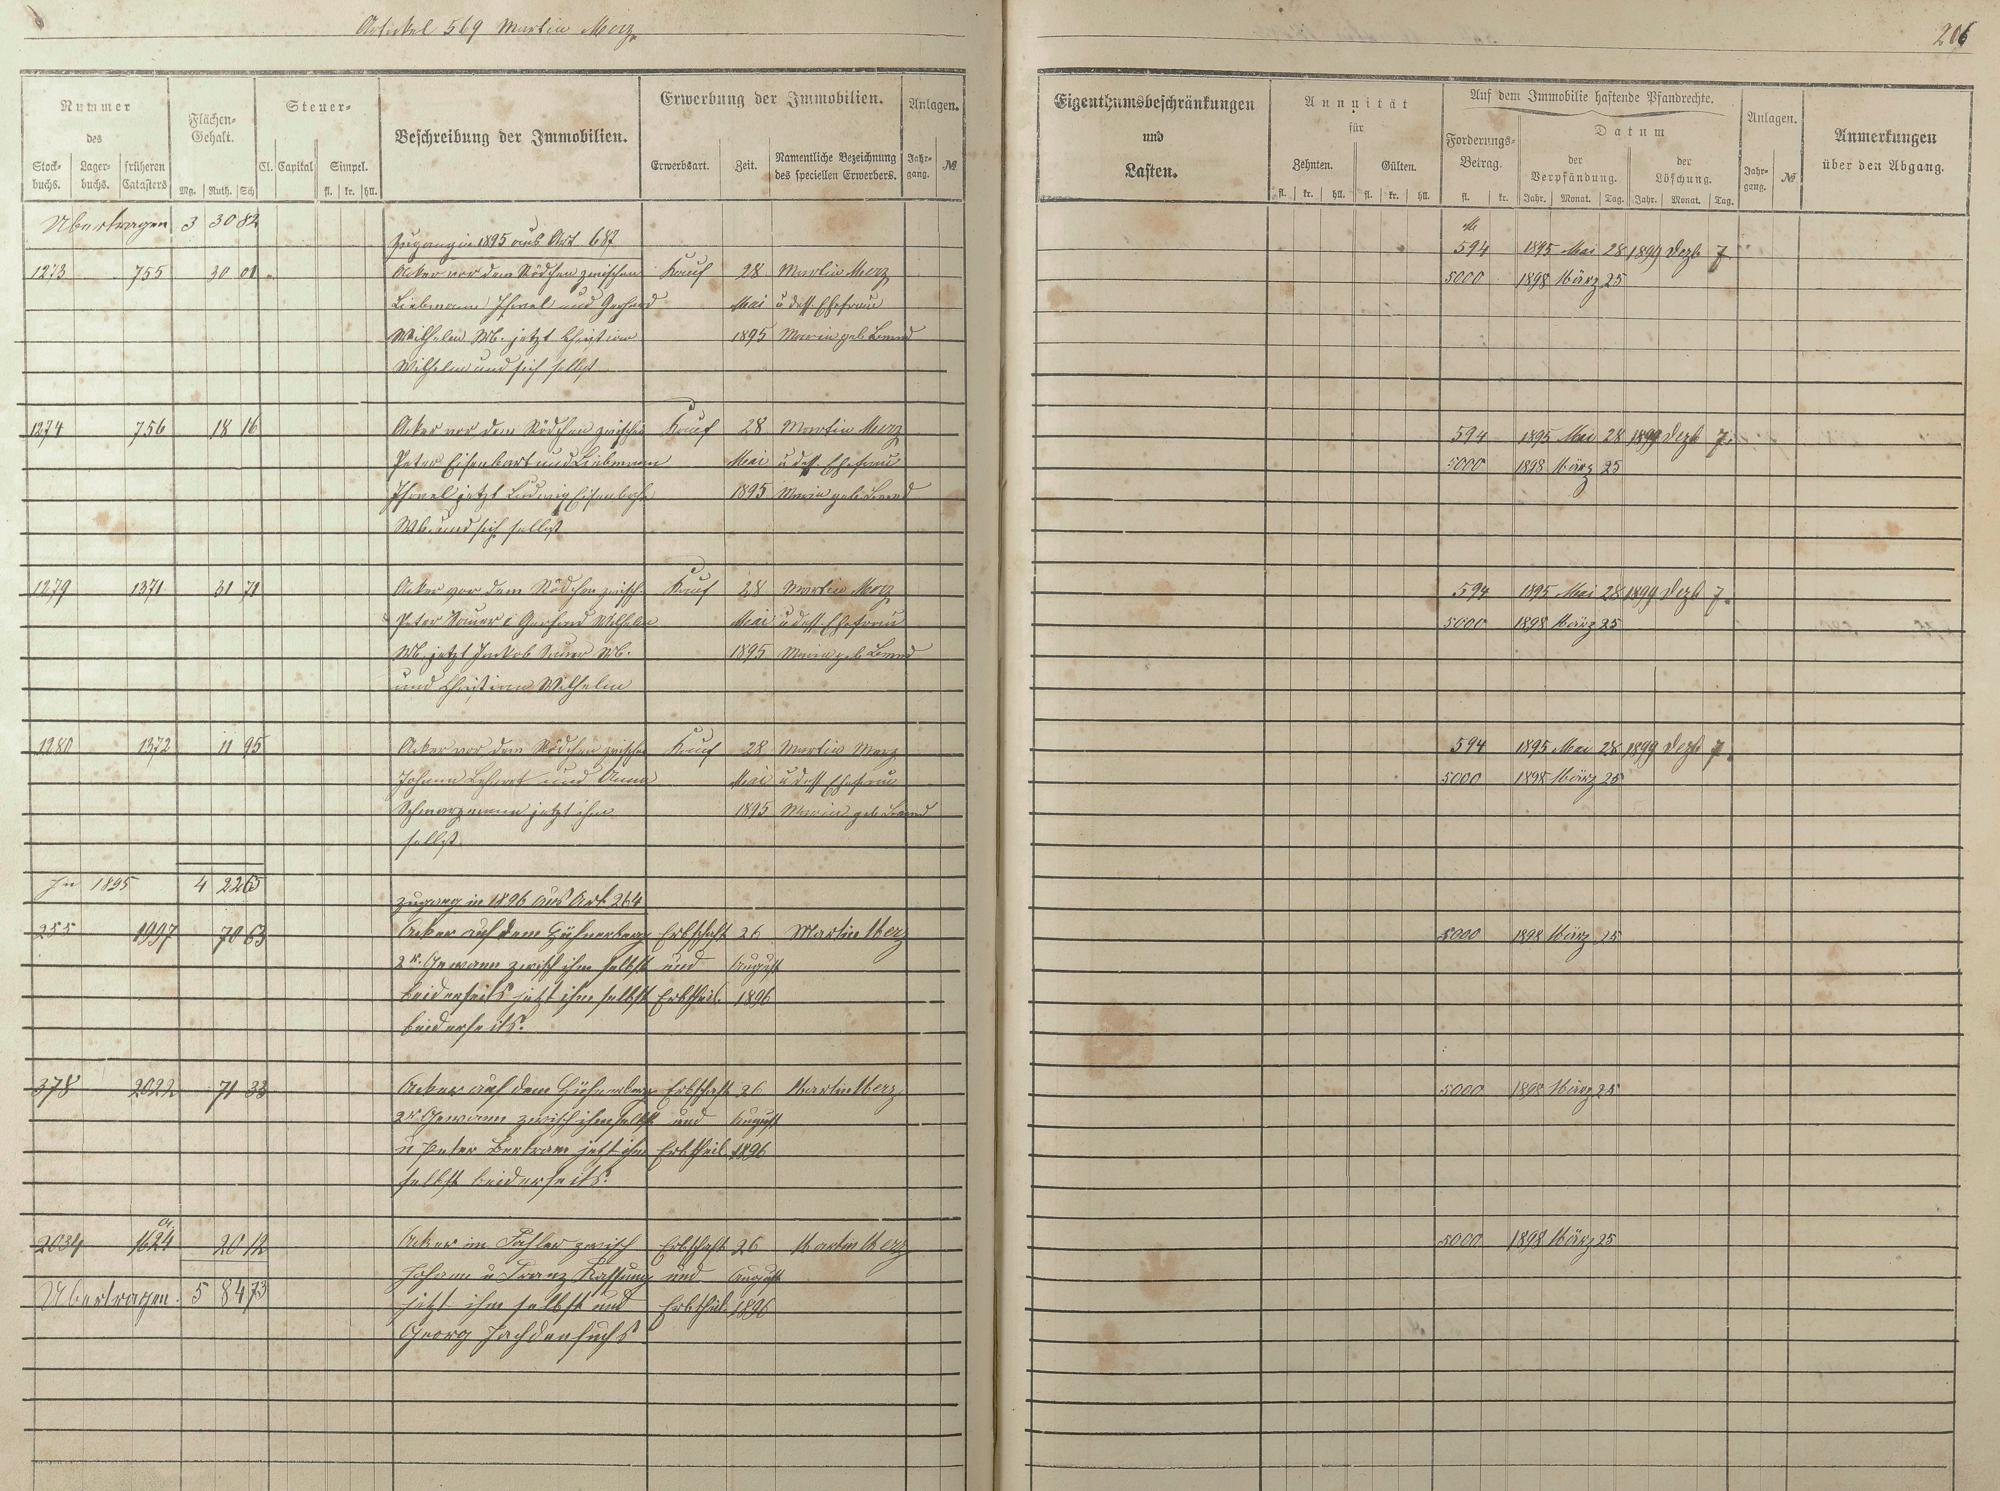 Artickel 569 Martin Merz
206
Nummer des
Stock-buchs. Lager-buchs. früheren Catasters
Flächen-Gehalt.
Mg. Ruth. Sch
Steuer-
Cl. Capital Simpel.
fl. kr. hll.
Beschreibung der Immobilien.
Erwerbung der Immobilien.
Erwerbsart. Zeit. Namentliche Bezeichnung des speciellen Erwerbers.
Anlagen.
Jahr-gang. №
Eigenthumsbeschränkungen
und
Lasten.
Annuität
für
Zehnten. Gülten.
fl. kr. hll. fl. kr. hll.
Auf dem Immobilie haftende Pfandrechte.
Forderungs-Betrag.
fl. kr.
Datum
der Verpfändung. der Löschung.
Jahr. Monat. Tag. Jahr. Monat. Tag.
Anlagen.
Jahr-gang. №
Anmerkungen
über den Abgang.
Übertragen 3 30 82
Zugang in 1895 aus Art 687
M
1273 755 30 01 Acker vor dem Rödchen zwischen Kauf 28 Martin Merz 594 1895 Mai 28 1899 Dezb 7
Liebmann Isreal und Gerhard Mai u dess. Ehefrau 5000 1898 März 25
Wilhelm Wb. jetzt Christian 1895 Maria geb.
Wilhelm und sich selbst
1274 756 18 16 Acker vor dem Rödchen zwischen Kauf 28 Martin Merz 594 1895 Mai 28 1899 Dezb 7.
Peter Eisenbart und Liebmann Mai u dess. Ehefrau 5000 1898 März 25
Isreal jetzt Ludwig 1895 Maria geb.
Wb. und sich selbst
1279 1371 31 71 Acker vor dem Rödchen zwisch. Kauf 28 Martin Merz 594 1895 Mai 28 1899 Dezb 7.
Peter Sauer u Gerhard Wilhelm Mai u dess. Ehefrau 5000 1898 März 25
Wb. jetzt Jakob Sauer Wb. 1895 Maria geb.
und Christian Wilhelm
1280 1372 11 95 Acker vor dem Rödchen zwischen Kauf 28 Martin Merz 594 1895 Mai 28 1899 Dezb 7.
Johann und Anna Mai u dess Ehefrau 5000 1898 März 25
Schwarzmann jetzt ihm 1895 Maria geb.
selbst.
In 1895 4 22 65
Zugang in 1896 aus Art 264
255 1997 70 63 Acker auf dem Hühnerberg Erbschaft 26 Martin Merz 5000 1898 März 25
2r. Gewann zwisch ihm selbst und August
beiderseits jetzt ihm selbst Erbtheil. 1896
beiderseits.
378 2022 71 33 Acker auf dem Hühnerberg Erbschaft 26 Martin Merz 5000 1898 März 25
2r. Gewann zwisch ihm selbst und August
u Peter Bertram jetzt ihm Erbtheil 1896
selbst beiderseits.
2034 1624 a. 20 12 Acker im zwisch Erbschaft 26 Martin Merz 5000 1898 März 25
Johann u Franz und August
Übertragen. 5 84 73 jetzt ihm selbst und Erbtheil 1896
Georg